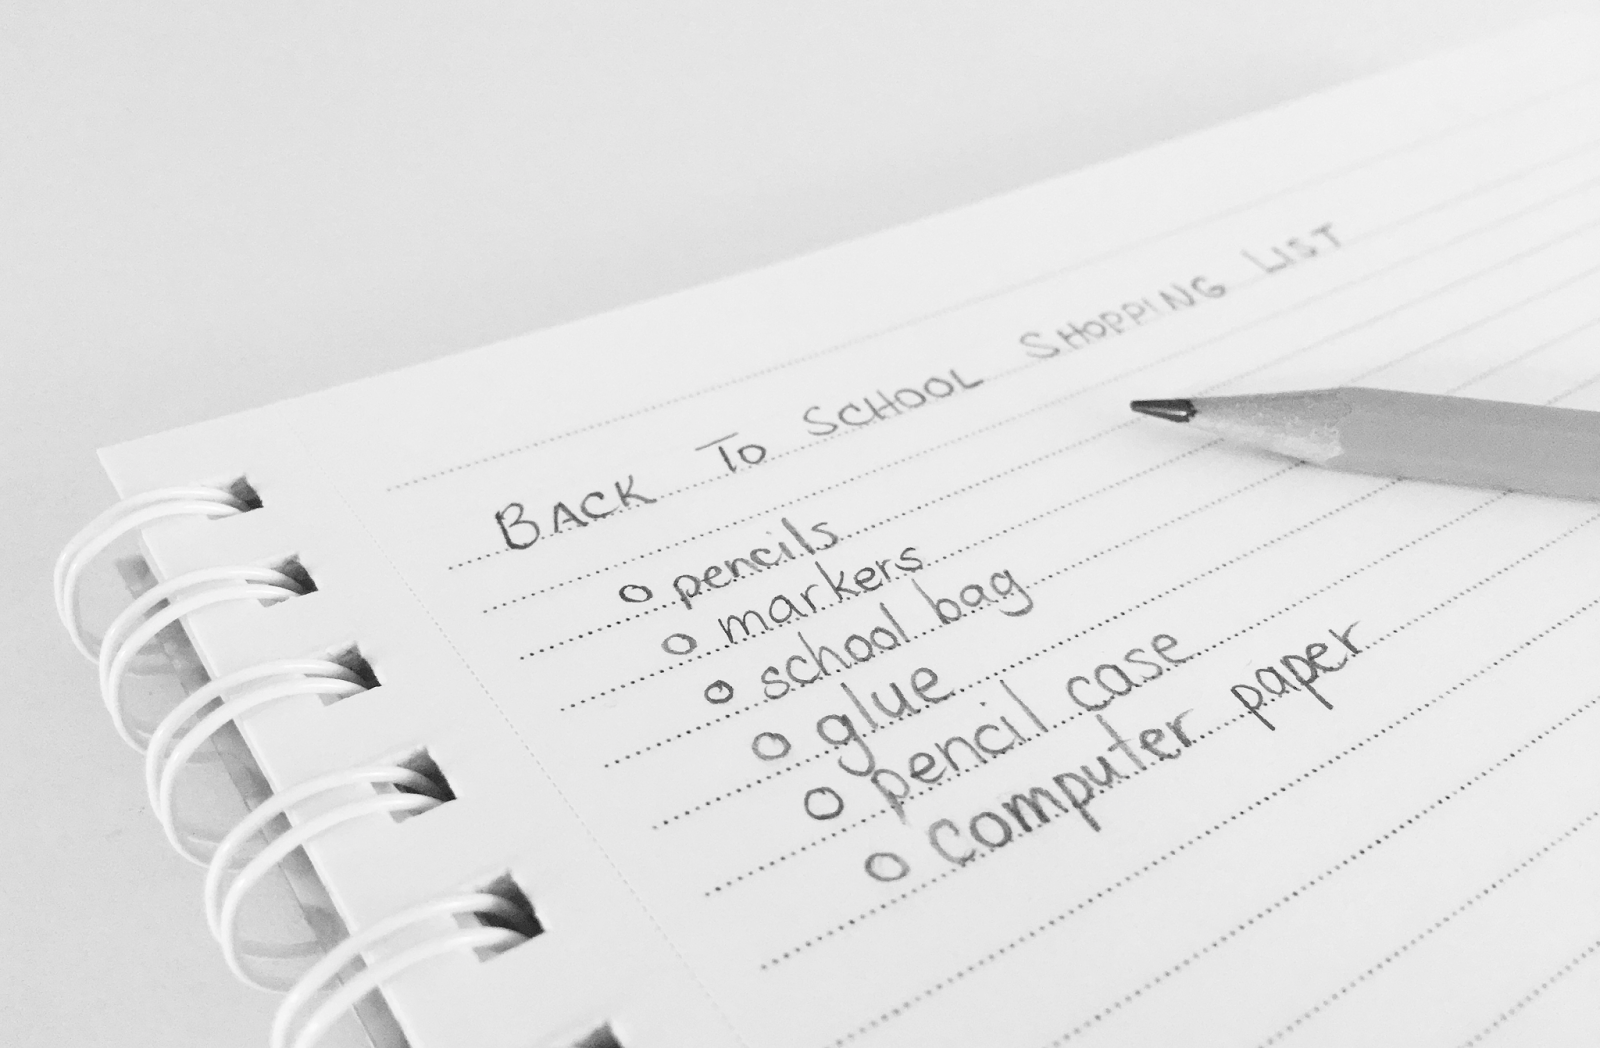 BACK TO SCHOOL SHOPPING LIST
o pencils
o markers
o school bag
o glue
o pencil case
o computer paper